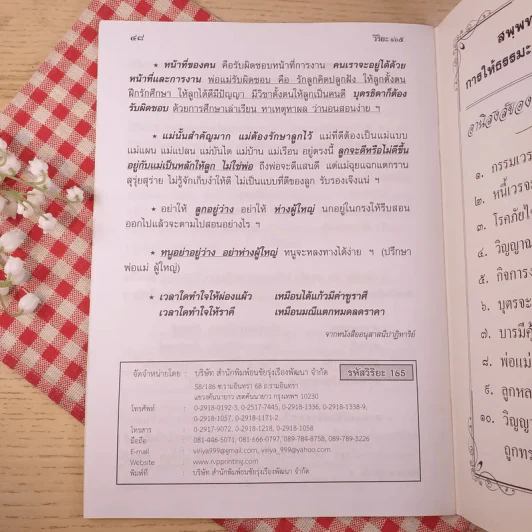 ๔๘
วิริยะ ๑๖๕
★ หน้าที่ของคน คือรับผิดชอบหน้าที่การงาน คนเราจะอยู่ได้ด้วย
หน้าที่และการงาน พ่อแม่รับผิดชอบ คือ รักลูกคิดปลูกฝัง ให้ลูกตั้งตน
ฝึกรักศึกษา ให้ลูกได้ดีมีปัญญา มีวิชาตั้งตนให้ลูกเป็นคนดี บุตรธิดาก็ต้อง
รับผิดชอบ ด้วยการศึกษาเล่าเรียน หาเหตุหาผล ว่านอนสอนง่าย ฯ
★ แม่นั้นสำคัญมาก แม่ต้องรักษาลูกไว้ แม่ที่ดีต้องเป็นแม่แบบ
แม่แผน แม่แปลน แม่บันได แม่บ้าน แม่เรือน อยู่ตรงนี้ ลูกจะดีหรือไม่ดีขึ้น
อยู่กับแม่เป็นหลักให้ลูก ไม่ใช่พ่อ ถึงพ่อจะดีแสนดี แต่แม่ฉุยแฉกแตกราน
สุรุ่ยสุร่าย ไม่รู้จักเก็บงำให้ดี ไม่เป็นแบบที่ดีของลูก รับรองเจ๊งแน่ ฯ
★ อย่าให้ ลูกอยู่ว่าง อย่าให้ ห่างผู้ใหญ่ นกอยู่ในกรงให้รีบสอน
ออกไปแล้วจะตามไปสอนอย่างไร ฯ
★ หนูอย่าอยู่ว่าง อย่าห่างผู้ใหญ่ หนูจะหลงทางได้ง่าย ฯ (ปรึกษา
พ่อแม่ ผู้ใหญ่)
★ เวลาใดทำใจให้ผ่องแผ้ว เหมือนได้แก้วมีค่าชูราศี
เวลาใดทำใจให้ราคี เหมือนมณีแตกหมดลดราคา
จากหนังสืออนุสาสนีปาฏิหาริย์
จัดจำหน่ายโดย : บริษัท สำนักพิมพ์อนชัยรุ่งเรืองพัฒนา จำกัด รหัสวิริยะ 165
58/186 ซ.รามอินทรา 68 ถ.รามอินทรา
แขวงคันนายาว เขตคันนายาว กรุงเทพฯ 10230
โทรศัพท์ : 0-2918-0192-3, 0-2517-7445, 0-2918-1336, 0-2918-1338-9,
0-2918-1057, 0-2918-1171-2
โทรสาร : 0-2917-9072, 0-2918-1218, 0-2918-1058
มือถือ : 081-446-5071, 081-666-0797, 089-784-8758, 089-789-3226
E-mail : viriya_999@gmail.com, viriya_999@yahoo.com
Website : www.rvpprinting.com
พิมพ์ที่ : บริษัท สำนักพิมพ์อนชัยรุ่งเรืองพัฒนา จำกัด
สพฺพท
การให้ธรรมะ
อานิสงส์ของ
๑. กรรมเวร
๒. หนี้เวรจะ
๓. โรคภัยไข้
๔. วิญญาณ
๕. กิจการง
๖. บุตรจะ
๗. บารมีคุ้
๘. พ่อแม่
๙. ลูกหล
๑๐. วิญญ
ถูกทร